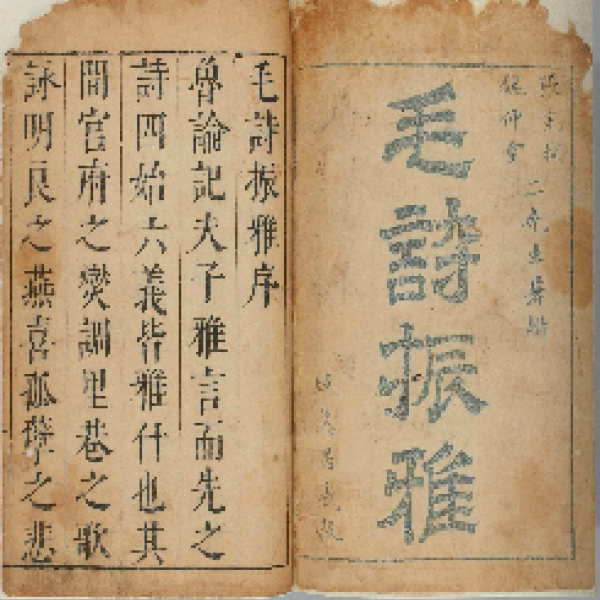 毛詩振雅
毛詩振雅序
魯論記夫子雅言而先之
詩四始六義皆雅什也其
間官府之爕調里巷之歌
詠明良之燕喜孤孽之悲